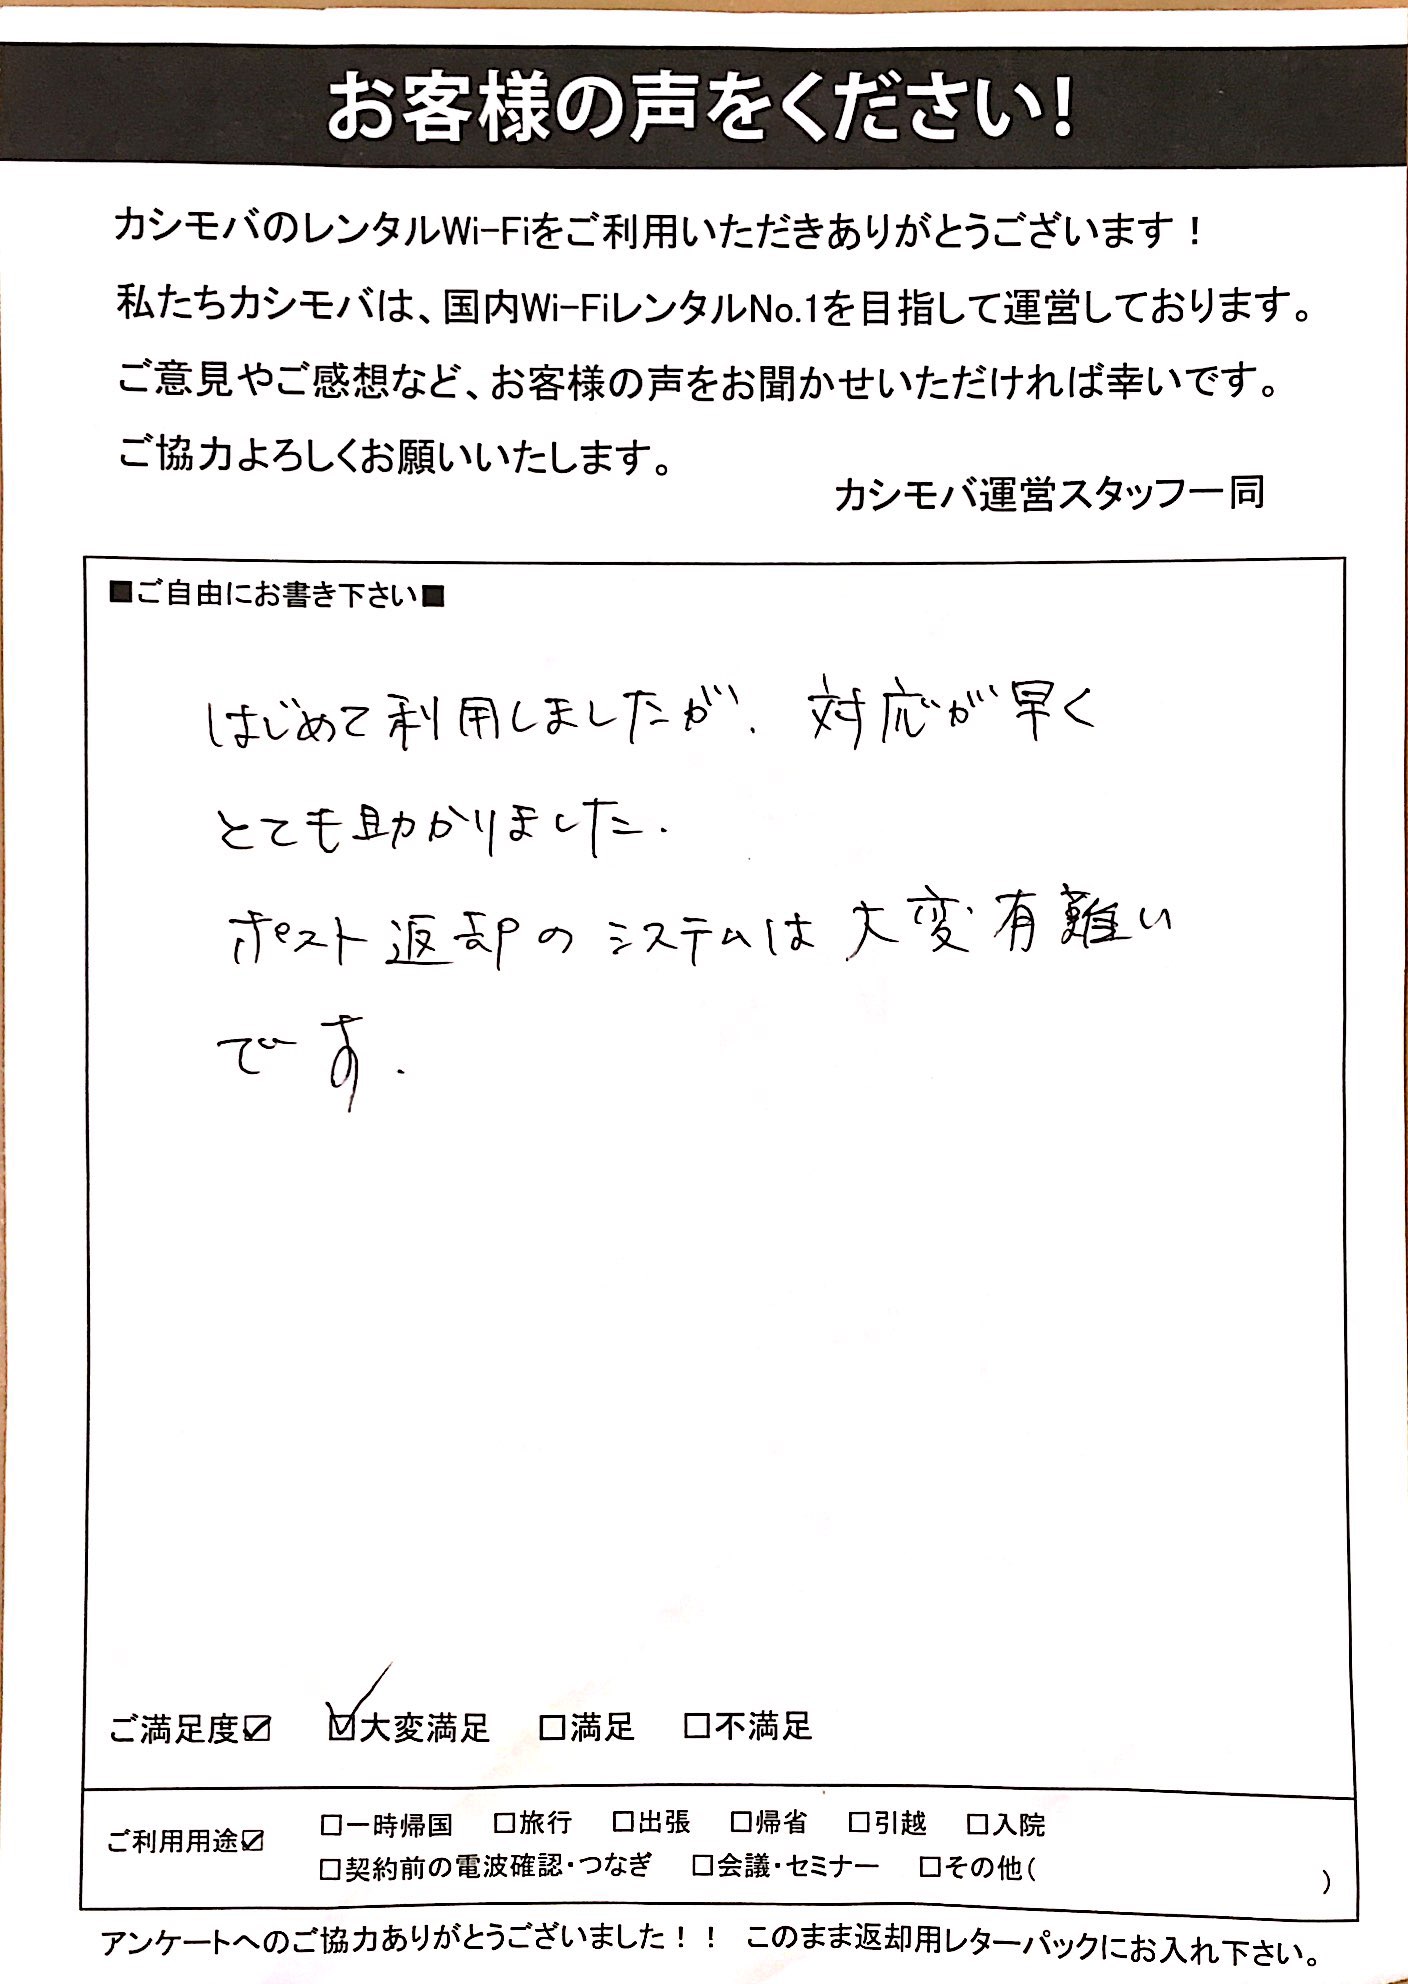 お客様の声をください!
カシモバのレンタルWi-Fiをご利用いただきありがとうございます！
私たちカシモバは、国内Wi-FiレンタルNo.1を目指して運営しております。
ご意見やご感想など、お客様の声をお聞かせいただければ幸いです。
ご協力よろしくお願いいたします。
カシモバ運営スタッフ一同
■ご自由にお書き下さい■
はじめて利用しましたが、対応が早く
とても助かりました.
ポスト返却のシステムは大変有難い
です.
ご満足度☑ ☑大変満足 □満足 □不満足
ご利用用途☑ □一時帰国 □旅行 □出張 □帰省 □引越 □入院
□契約前の電波確認・つなぎ □会議・セミナー □その他( )
アンケートへのご協力ありがとうございました！！ このまま返却用レターパックにお入れ下さい。